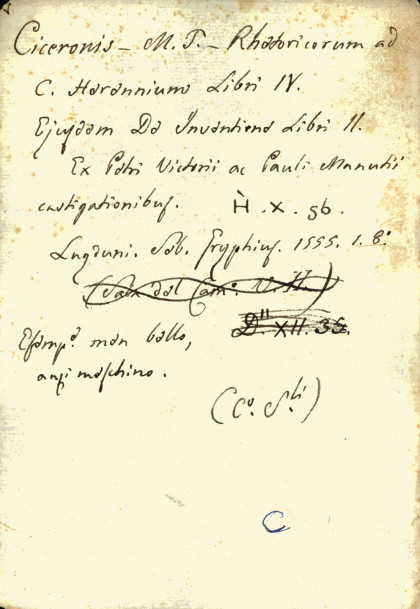 Ciceronis - M. T. - Rhetoricorum ad
C. Herennium Libri IV.
Ejusdem De Inventione Libri II.
Ex Petri Victorii ac Pauli Manutii
castigationibus. H . X . 56.
Lugduni. Seb. Gryphius. 1555. 1. 8º
N. H.
D. XII. 35.
Esempº men bello,
anzi meschino.
(Cº. Sli)
C